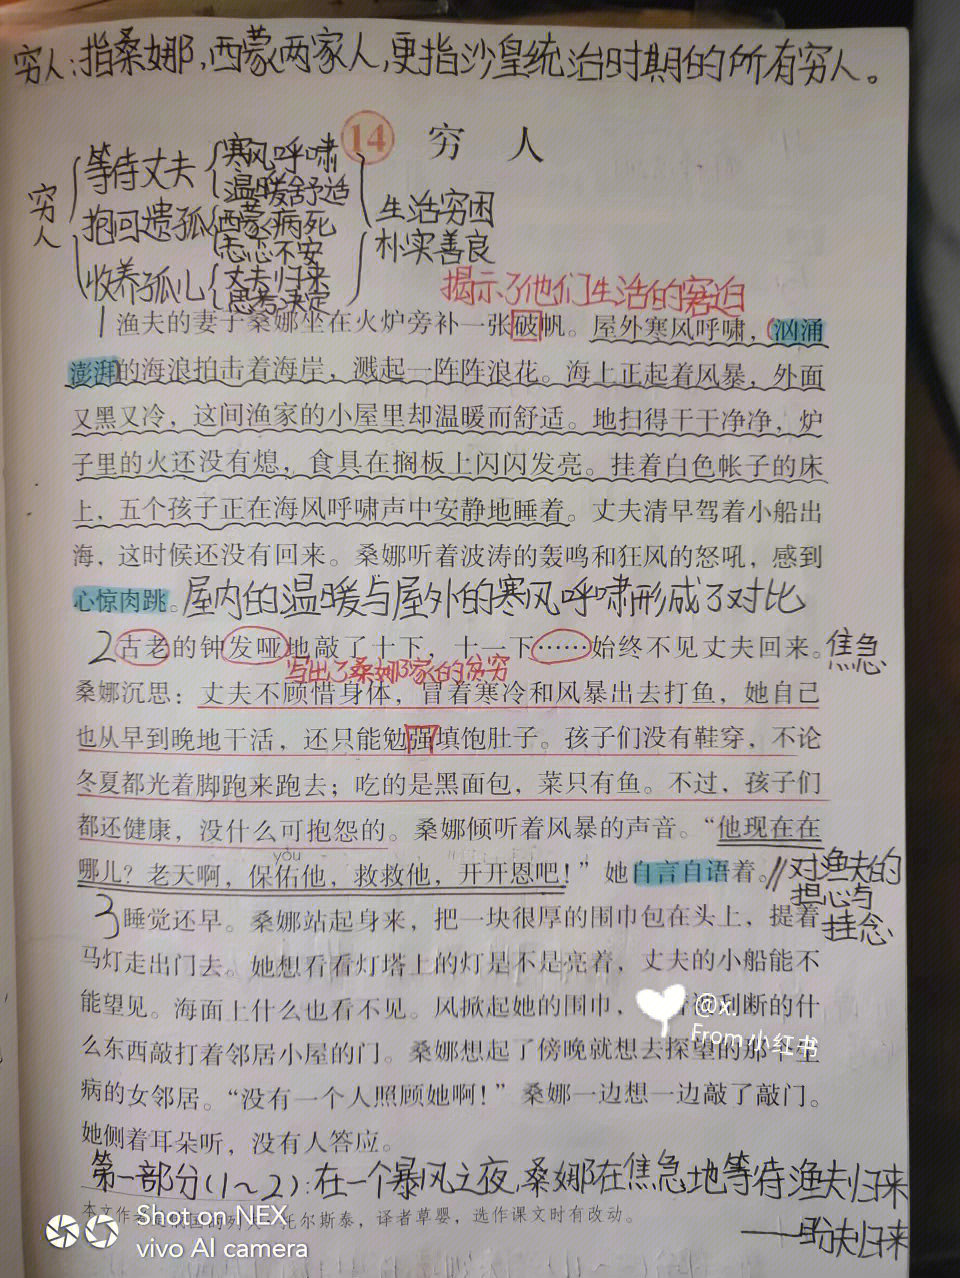 穷人:指桑娜,西蒙两家人,更指沙皇统治时期的所有穷人。
14 穷人
穷人
等待丈夫 寒风呼啸
温暖舒适
抱回遗孤 西蒙病死
忐忑不安
收养孤儿 丈夫归来
思考决定
生活穷困
朴实善良
揭示了他们生活的窘迫
1 渔夫的妻子桑娜坐在火炉旁补一张破帆。屋外寒风呼啸,汹涌
澎湃的海浪拍击着海岸,溅起一阵阵浪花。海上正起着风暴,外面
又黑又冷,这间渔家的小屋里却温暖而舒适。地扫得干干净净,炉
子里的火还没有熄,食具在搁板上闪闪发亮。挂着白色帐子的床
上,五个孩子正在海风呼啸声中安静地睡着。丈夫清早驾着小船出
海,这时候还没有回来。桑娜听着波涛的轰鸣和狂风的怒吼,感到
心惊肉跳。屋内的温暖与屋外的寒风呼啸形成了对比
2 古老的钟发哑地敲了十下,十一下……始终不见丈夫回来。 焦急
写出了桑娜家的贫穷
桑娜沉思:丈夫不顾惜身体,冒着寒冷和风暴出去打鱼,她自己
也从早到晚地干活,还只能勉强填饱肚子。孩子们没有鞋穿,不论
冬夏都光着脚跑来跑去;吃的是黑面包,菜只有鱼。不过,孩子们
都还健康,没什么可抱怨的。桑娜倾听着风暴的声音。“他现在在
yòu
哪儿?老天啊,保佑他,救救他,开开恩吧!”她自言自语着。//对渔夫的
担心与
挂念
3 睡觉还早。桑娜站起身来,把一块很厚的围巾包在头上,提着
马灯走出门去。她想看看灯塔上的灯是不是亮着,丈夫的小船能不
能望见。海面上什么也看不见。风掀起她的围巾,刮断的什
么东西敲打着邻居小屋的门。桑娜想起了傍晚就想去探望的那个生
病的女邻居。“没有一个人照顾她啊!”桑娜一边想一边敲了敲门。
她侧着耳朵听,没有人答应。
@x.
From 小红书
第一部分(1~2):在一个暴风之夜,桑娜在焦急地等待渔夫归来
——盼夫归来
本文作者 国的列夫·托尔斯泰,译者草婴,选作课文时有改动。
Shot on NEX
vivo AI camera